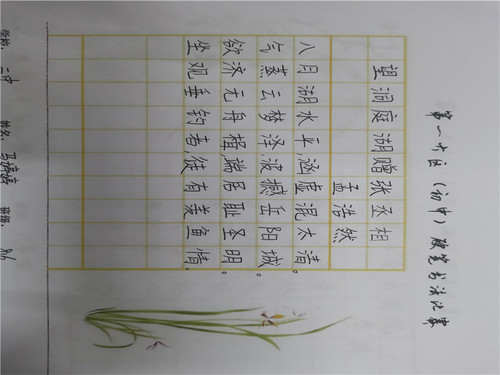 第一片区（初中）硬笔书法比赛
望洞庭湖赠张丞相
孟浩然
八月湖水平，涵虚混太清。
气蒸云梦泽，波撼岳阳城。
欲济无舟楫，端居耻圣明。
坐观垂钓者，徒有羡鱼情。
学校：二中 姓名：马婷婷 班级：